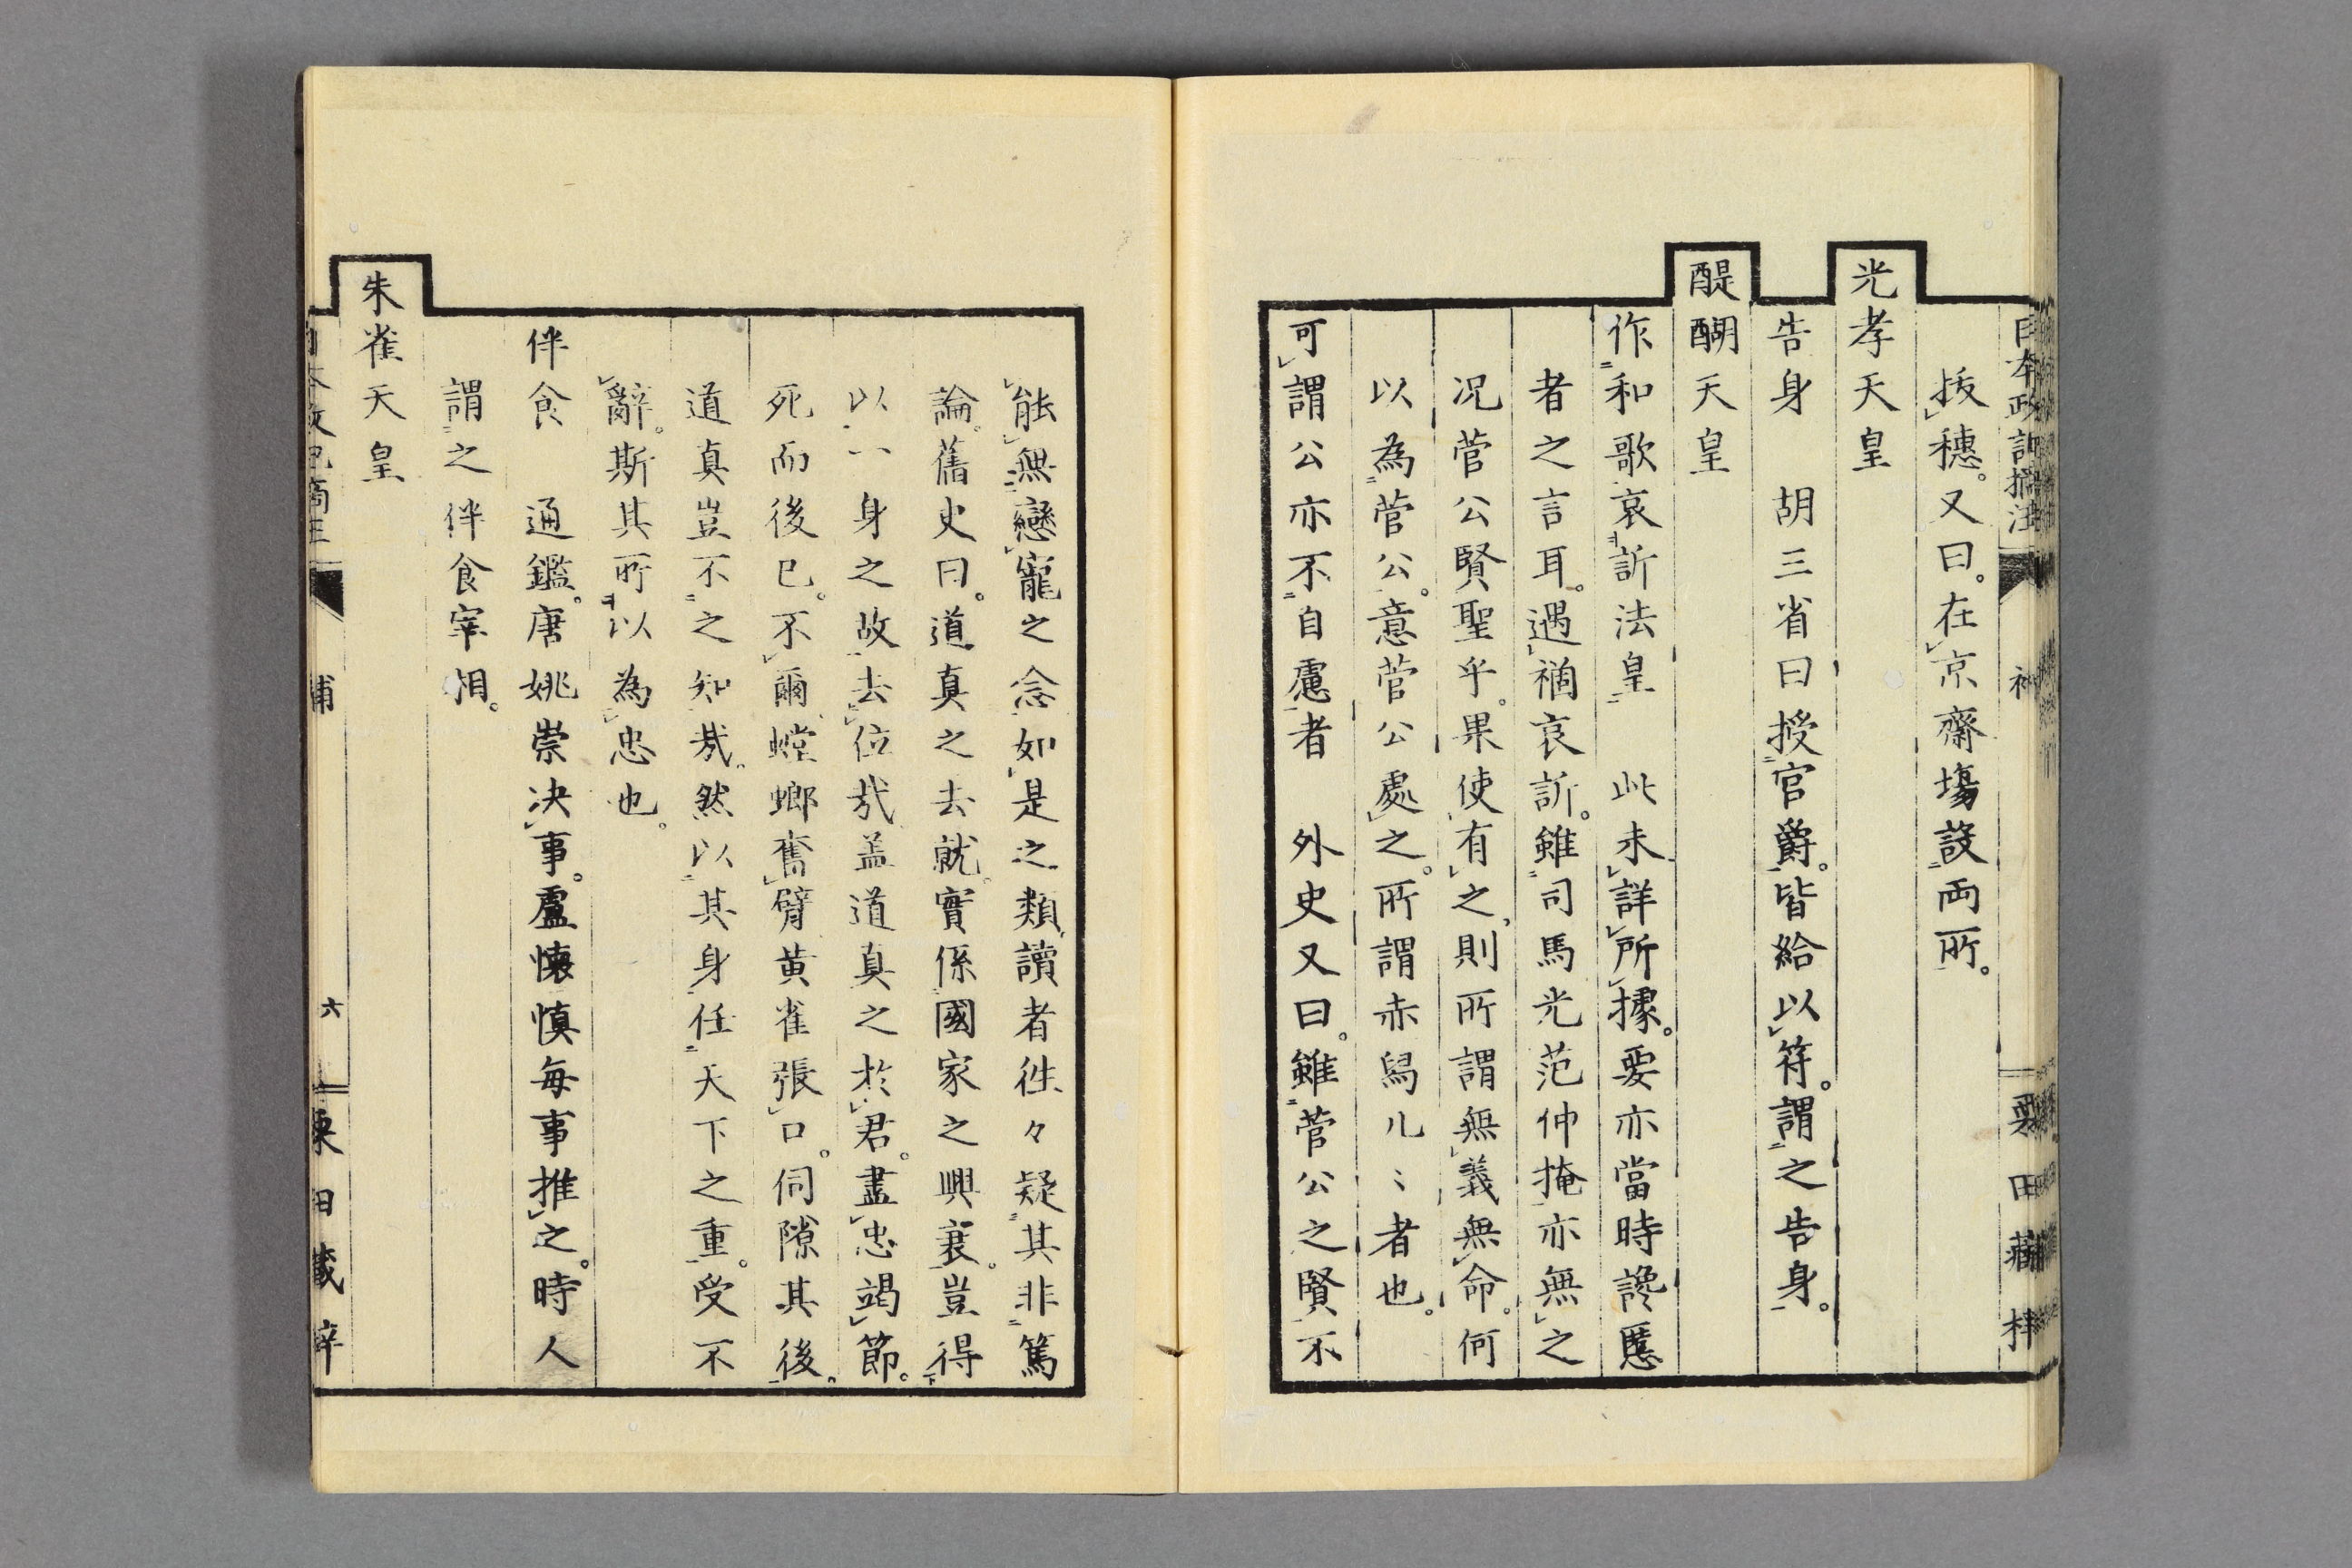 日本政記摘注
補
栗田藏梓
抜穗。又曰。在京齋場設両所。
光孝天皇
告身　胡三省曰授官爵。皆給以符。謂之告身。
醍醐天皇
作和歌哀訴法皇　此未詳所據。要亦當時讒慝
者之言耳。遇禍哀訴。雖司馬光范仲掩亦無之
况菅公賢聖乎。果使有之、則所謂無義無命。何
以為菅公。意菅公處之。所謂赤舄几〻者也。
可謂公亦不自慮者　外史又曰。雖菅公之賢不
能無戀寵之念如是之類讀者徃々疑其非篤
論。舊史曰。道真之去就。實係國家之興衰。豈得
以一身之故去位哉盖道真之於君。盡忠竭節。
死而後已。不爾螳螂奮臂黄雀張口。伺隙其後。
道真豈不之知哉。然以其身任天下之重。受不
辭。斯其所以為忠也。
伴食　通鑑。唐姚崇决事。盧懐慎毎事推之。時人
謂之伴食宰相。
朱雀天皇
六